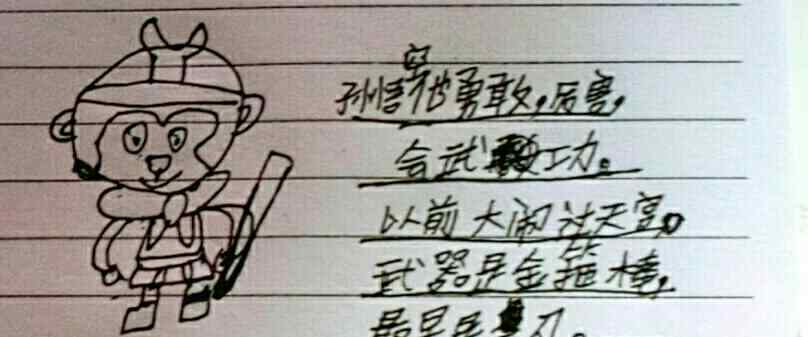 孙悟空他勇敢,厉害,
会武功。
以前大闹过天宫。
武器是金箍棒,